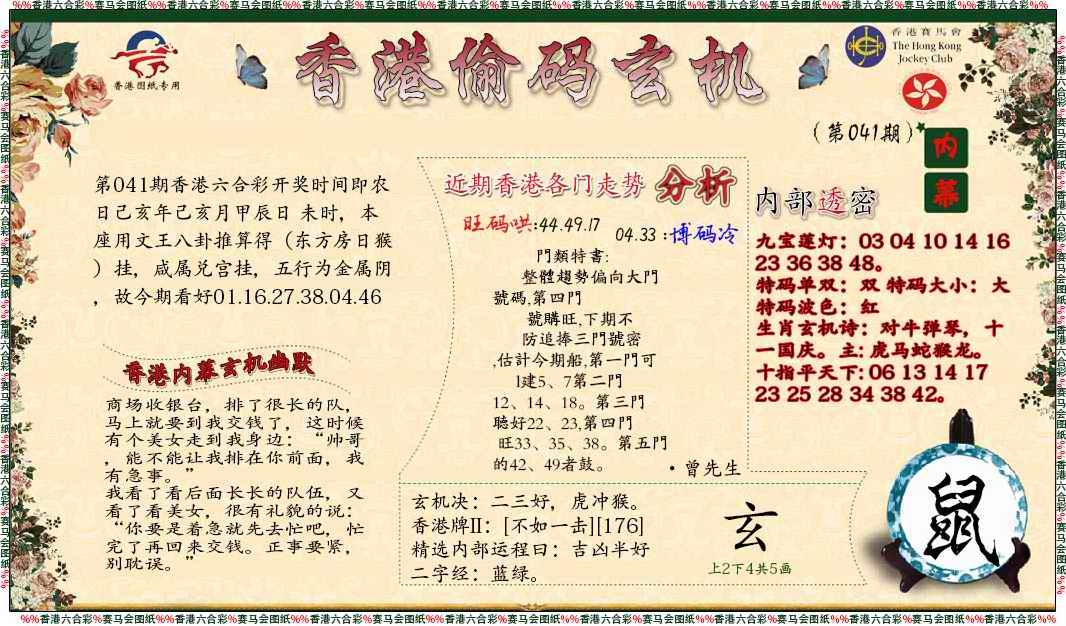 %%香港六合彩%赛马会图纸%%香港六合彩%赛马会图纸%%香港六合彩%赛马会图纸%%香港六合彩%赛马会图纸%%香港六合彩%赛马会图纸%%香港六合彩%赛马会图纸%%香港六合彩%%
香港图纸专用
香港偷码玄机
香港賽馬會
The Hong Kong
Jockey Club
(第041期)
内
幕
第041期香港六合彩开奖时间即农
日己亥年己亥月甲辰日 未时，本
座用文王八卦推算得（东方房日猴
）挂，咸属兑宫挂，五行为金属阴
，故今期看好01.16.27.38.04.46
香港内幕玄机幽默
商场收银台，排了很长的队，
马上就要到我交钱了，这时候
有个美女走到我身边：“帅哥
，能不能让我排在你前面，我
有急事。”
我看了看后面长长的队伍，又
看了看美女，很有礼貌的说：
“你要是着急就先去忙吧，忙
完了再回来交钱。正事要紧，
别耽误。”
近期香港各门走势 分析
旺码哄:44.49.17
04.33 :博码冷
門類特書:
整體趨勢偏向大門
號碼,第四門
號購旺,下期不
防追捧三門號密
,估計今期船,第一門可
l建5、7第二門
12、14、18。第三門
聽好22、23,第四門
旺33、35、38。第五門
的42、49者鼓。
·曾先生
内部透密
九宝莲灯：03 04 10 14 16
23 36 38 48。
特码单双：双 特码大小：大
特码波色：红
生肖玄机诗：对牛弹琴，十
一国庆。主: 虎马蛇猴龙。
十指平天下: 06 13 14 17
23 25 28 34 38 42。
玄机决：二三好，虎冲猴。
香港牌II：[不如一击][176]
精选内部运程曰：吉凶半好
二字经：蓝绿。
玄
上2下4共5画
鼠
%%香港六合彩%赛马会图纸%%香港六合彩%赛马会图纸%%香港六合彩%赛马会图纸%%香港六合彩%赛马会图纸%%香港六合彩%赛马会图纸%%香港六合彩%赛马会图纸%%香港六合彩%%